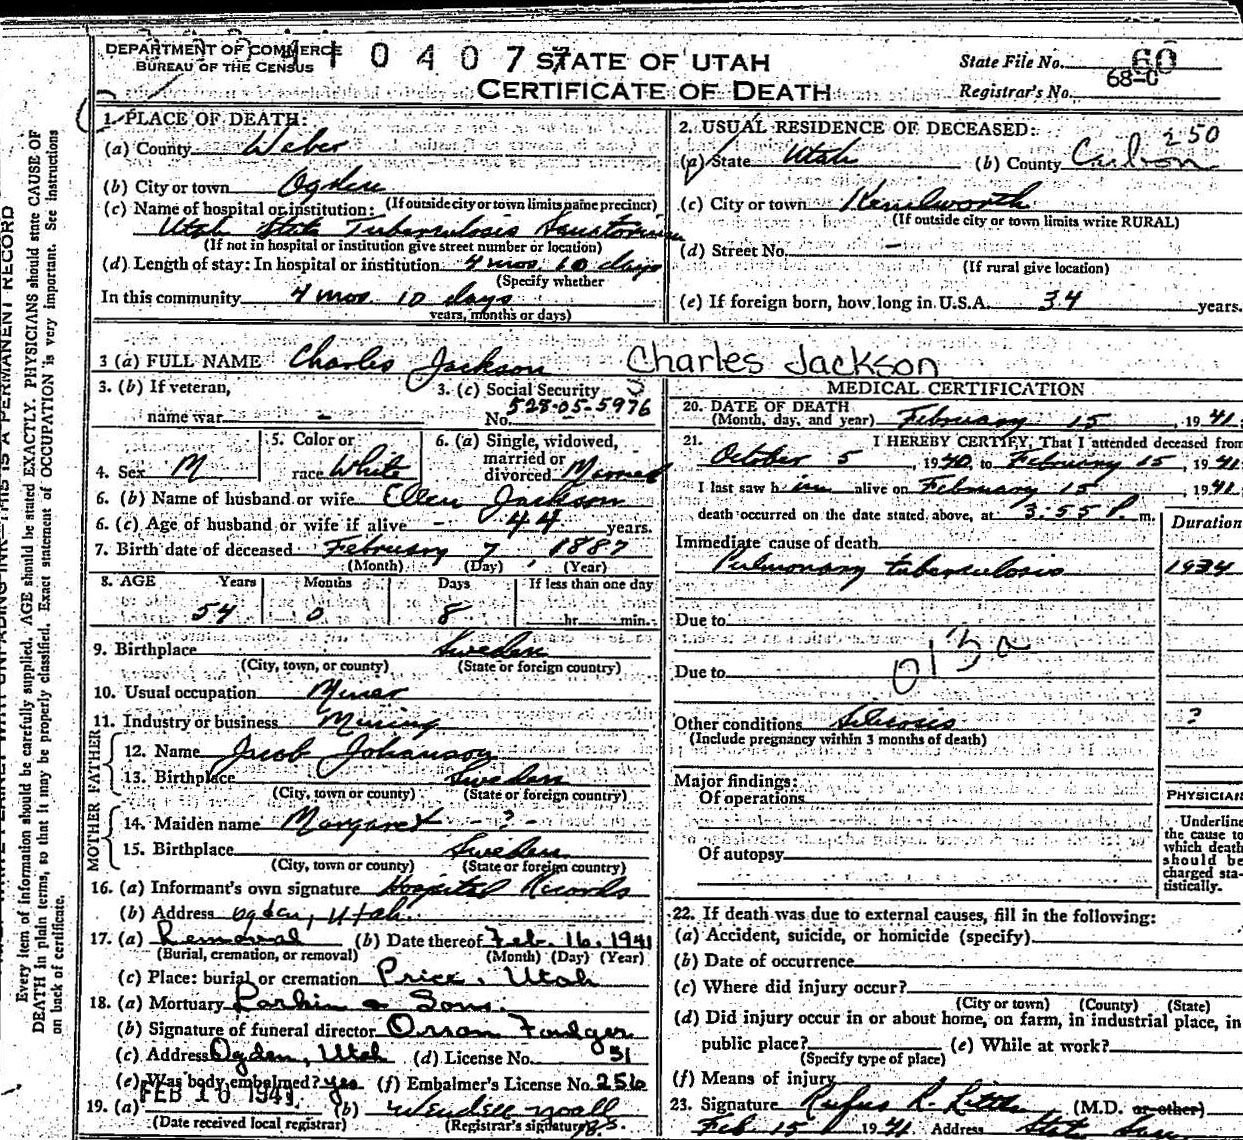 DEPARTMENT OF COMMERCE
BUREAU OF THE CENSUS
0 4 0 7 7
STATE OF UTAH
CERTIFICATE OF DEATH
State File No. 60
68-0
Registrar's No.
1. PLACE OF DEATH:
(a) County Weber
(b) City or town Ogden
(If outside city or town limits name precinct)
(c) Name of hospital or institution:
Utah State Tuberculosis Sanatorium
(If not in hospital or institution give street number or location)
(d) Length of stay: In hospital or institution 4 mos. 10 days
(Specify whether
In this community 4 mos. 10 days
years, months or days)
2. USUAL RESIDENCE OF DECEASED:
250
(a) State Utah (b) County Carbon
(c) City or town Kenilworth
(If outside city or town limits write RURAL)
(d) Street No. -
(If rural give location)
(e) If foreign born, how long in U.S.A. 34 years.
3 (a) FULL NAME Charles Jackson Charles Jackson
3. (b) If veteran,
name war -
3. (c) Social Security
No. 528-05-5976
4. Sex M
5. Color or
race White
6. (a) Single, widowed,
married or
divorced Married
6. (b) Name of husband or wife Ellen Jackson
6. (c) Age of husband or wife if alive - 44 years.
7. Birth date of deceased February 7, 1887
(Month) (Day) (Year)
8. AGE Years Months Days If less than one day
54 0 8 hr. min.
9. Birthplace Sweden
(City, town, or county) (State or foreign country)
10. Usual occupation Miner
11. Industry or business Mining
FATHER
12. Name Jacob Johanson
13. Birthplace Sweden
(City, town or county) (State or foreign country)
MOTHER
14. Maiden name Margaret - ? -
15. Birthplace Sweden
(City, town or county) (State or foreign country)
16. (a) Informant's own signature Hospital Records
(b) Address Ogden, Utah.
17. (a) Removal (b) Date thereof Feb. 16. 1941
(Burial, cremation, or removal) (Month) (Day) (Year)
(c) Place: burial or cremation Price, Utah
18. (a) Mortuary Larkin & Sons.
(b) Signature of funeral director Orson Foulger
(c) Address Ogden, Utah (d) License No. 31
(e) Was body embalmed? yes (f) Embalmer's License No. 256
19. (a) FEB 1941 (b) Wendell Noall
(Date received local registrar) (Registrar's signature)
MEDICAL CERTIFICATION
20. DATE OF DEATH
(Month, day, and year) February 15, 1941.
21. I HEREBY CERTIFY, That I attended deceased from
October 5, 1940, to February 15, 1941.
I last saw him alive on February 15, 1941.
death occurred on the date stated above, at 3:55 P. m.
Duration
Immediate cause of death
Pulmonary tuberculosis 1934
Due to
013a
Due to
Other conditions Silicosis ?
(Include pregnancy within 3 months of death)
Major findings:
Of operations
Of autopsy
PHYSICIAN
Underline
the cause to
which death
should be
charged sta-
tistically.
22. If death was due to external causes, fill in the following:
(a) Accident, suicide, or homicide (specify)
(b) Date of occurrence
(c) Where did injury occur?
(City or town) (County) (State)
(d) Did injury occur in or about home, on farm, in industrial place, in
public place? (e) While at work?
(Specify type of place)
(f) Means of injury
23. Signature Rufus R. Little (M.D. or other)
Feb. 15 1941 Address State San
THIS IS A PERMANENT RECORD
Every item of information should be carefully supplied. AGE should be stated EXACTLY. PHYSICIANS should state CAUSE OF
DEATH in plain terms, so that it may be properly classified. Exact statement of OCCUPATION is very important. See instructions
on back of certificate.